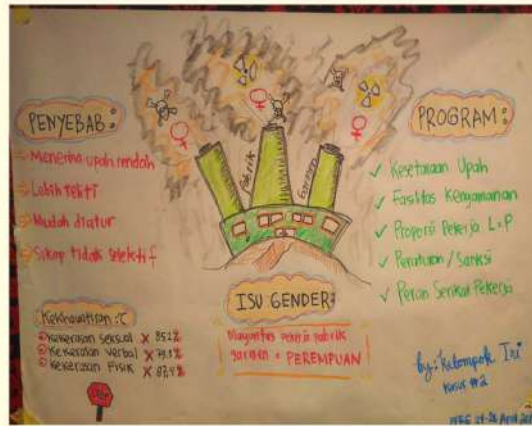 PENYEBAB:
Menerima upah rendah
Lebih teliti
Mudah diatur
Sikap tidak selektif
Kekhawatiran :(
Kekerasan seksual X
Kekerasan verbal X
Kekerasan Fisik X
STOP
Pabrik
Garmen
ISU GENDER:
Mayoritas pekerja pabrik
garmen = PEREMPUAN
PROGRAM:
✓ Kesetaraan Upah
✓ Fasilitas Kenyamanan
✓ Proporsi Pekerja L=P
✓ Peraturan/Sanksi
✓ Peran Serikat Pekerja
by: Kelompok Ini
Kasus #2